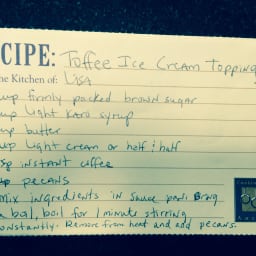 CIPE: Toffee Ice Cream Topping
he Kitchen of: Lisa
up firmly packed brown sugar
up light Karo syrup
up butter
up light cream or half & half
sp instant coffee
up pecans
Mix ingredients in sauce pan. Bring
a boil, boil for 1 minute stirring
onstantly. Remove from heat and add pecans.